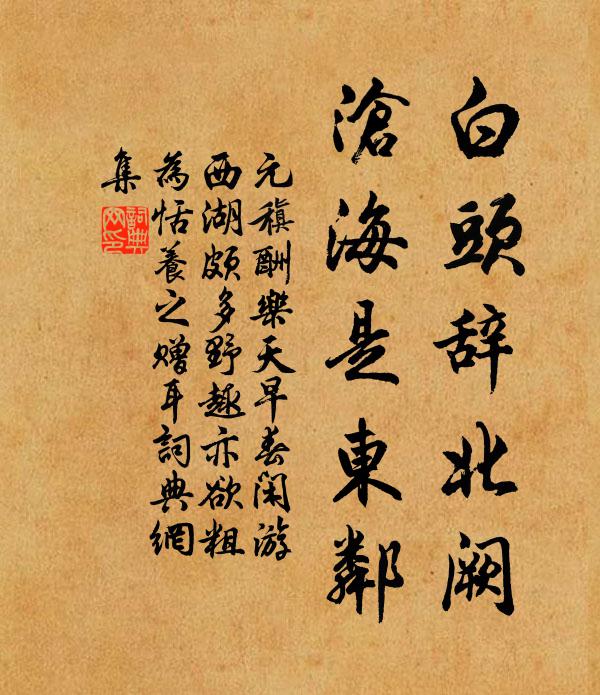 白頭辞北阙
滄海是東鄰
元稹酬樂天早春闲游
西湖頗多野趣亦欲粗
為恬養之贈耳詞典網
集
詞典网印